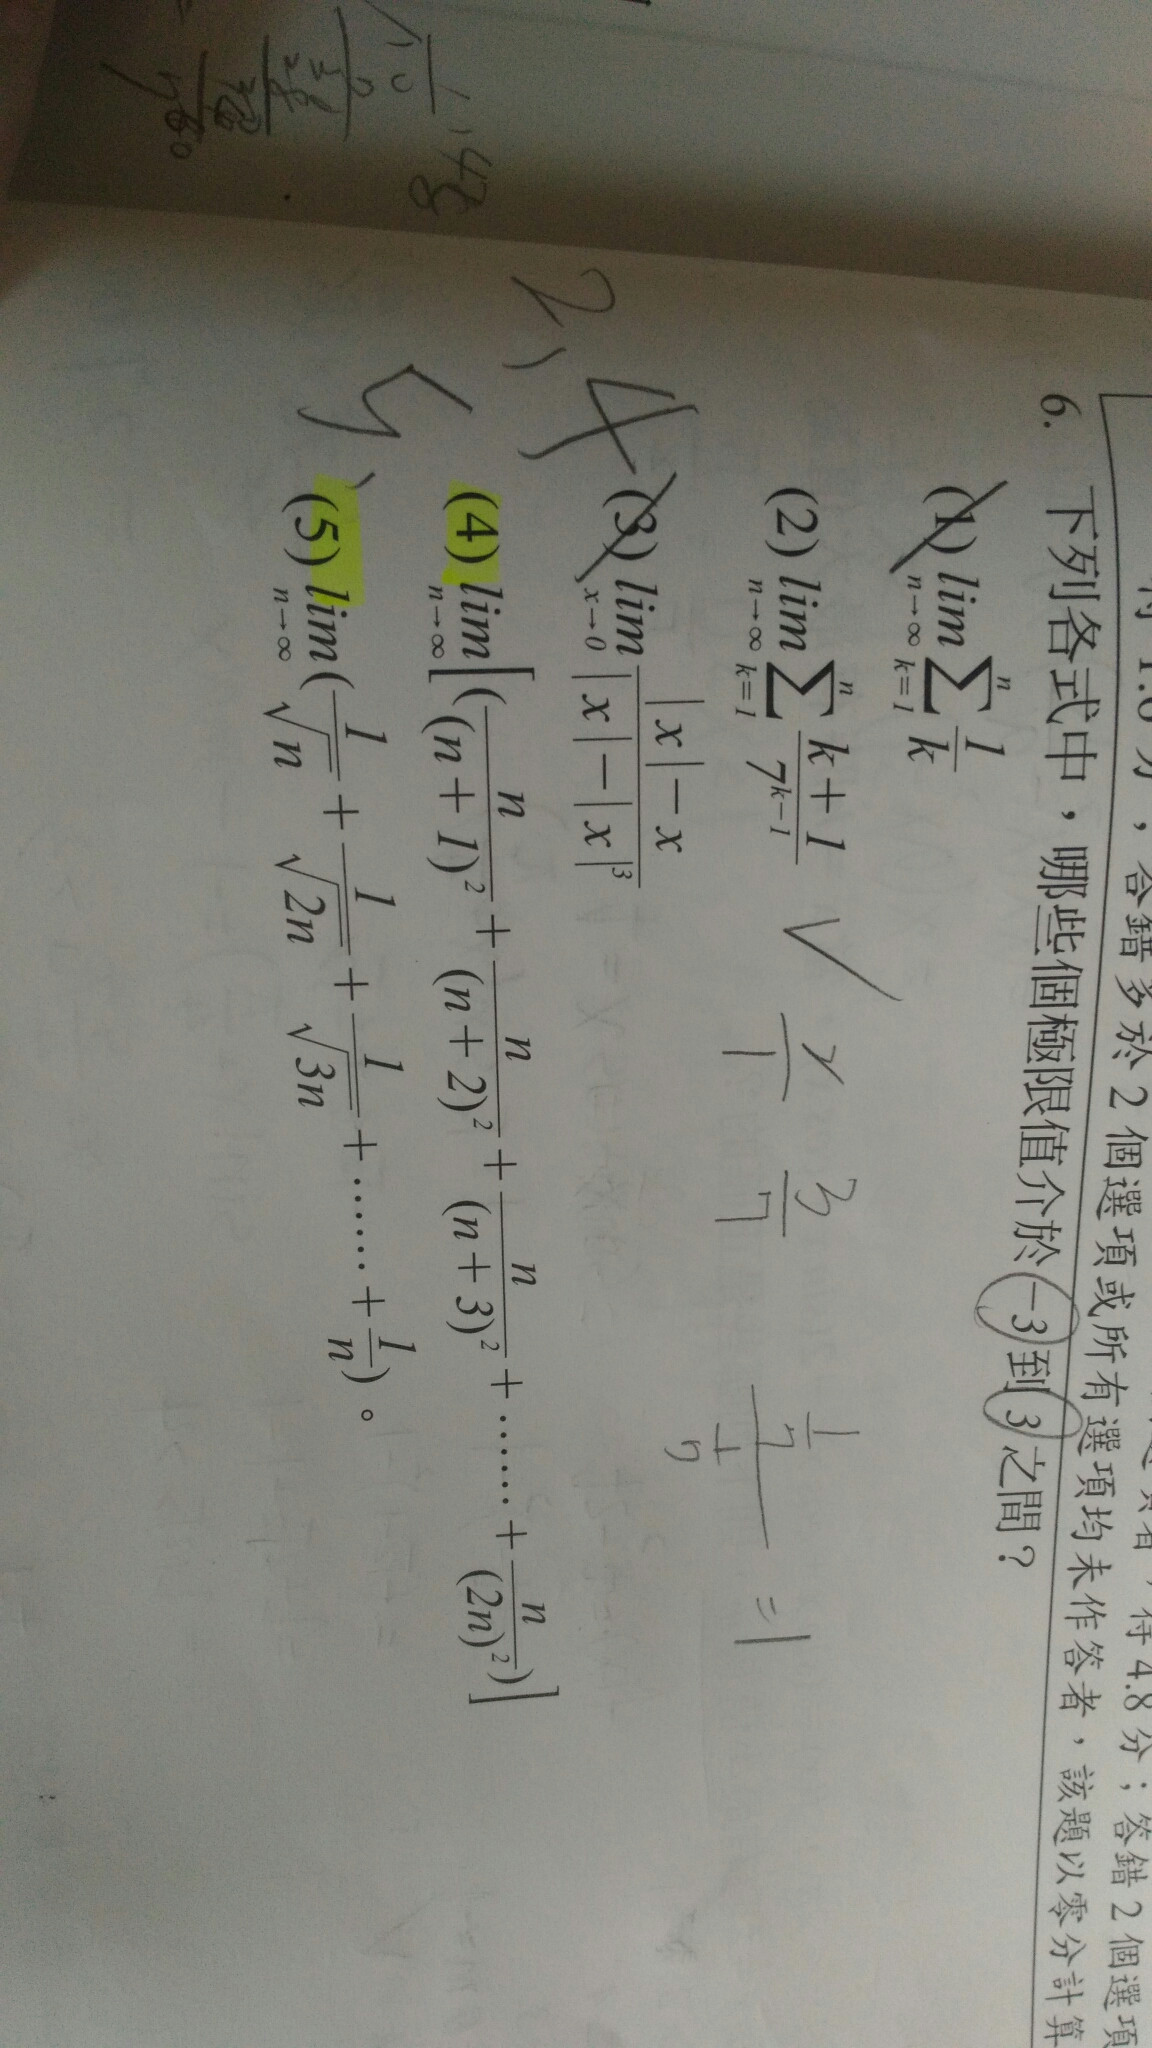 ，答錯多於 2 個選項或所有選項均未作答者，該題以零分計算
得 4.8 分；答錯 2 個選項
6. 下列各式中，哪些個極限值介於 −3 到 3 之間？
(1) lim_{n→∞} ∑_{k=1}^{n} 1/k
(2) lim_{n→∞} ∑_{k=1}^{n} (k+1)/7^{k−1} ✓ 3/7 =1
(3) lim_{x→0} (|x|−x)/(|x|−|x|³)
(4) lim_{n→∞} [(n/(n+1)² + n/(n+2)² + n/(n+3)² + …… + n/(2n)²)]
(5) lim_{n→∞} (1/√n + 1/√2n + 1/√3n + …… + 1/n)。
2, 4